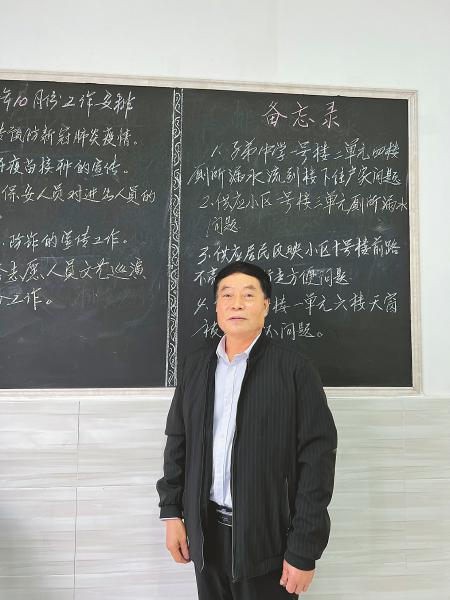 年10月份工作安排
预防新冠肺炎疫情。
疫苗接种的宣传。
保安人员对进名人员的
防诈的宣传工作。
志愿人员文艺巡演
工作。
备忘录
1.子弟中学一号楼二单元四楼
厕所漏水流到楼下住户家问题
2.供应小区一号楼三单元厕所漏水
问题
3.供应居民反映小区十号楼前路
不方便问题
四.楼一单元六楼天窗
被问题。